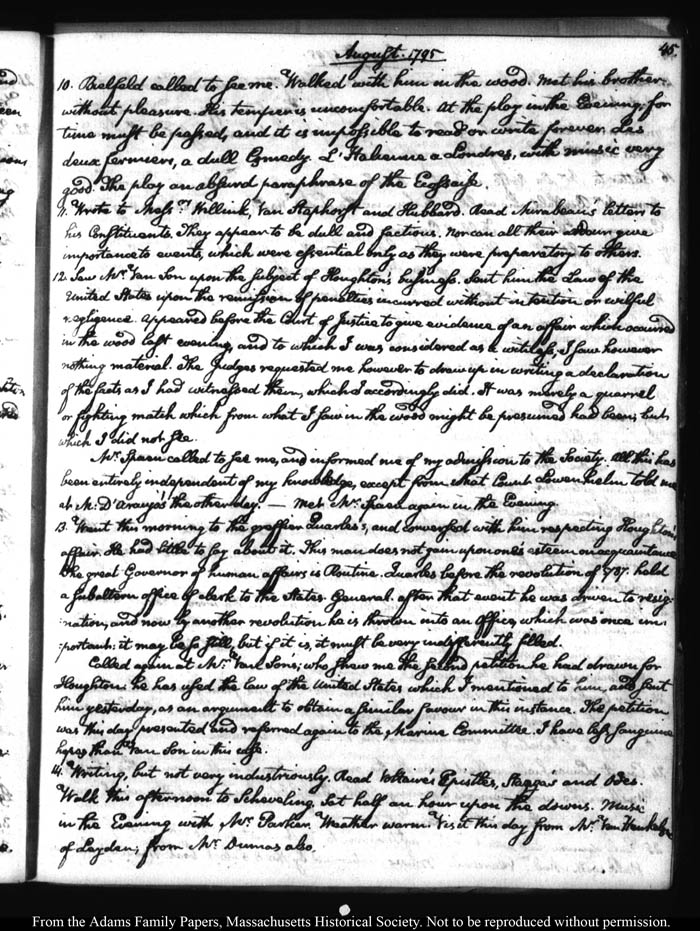 August. 1795.
45.
10. Bielfeld called to see me. Walked with him in the wood. Met his brother
without pleasure. His temper is uncomfortable. At the play in the Evening; for
time must be passed, and it is impossible to read or write forever. Les
deux fermiers, a dull Comedy. L'Italienne a Londres, with music very
good. The play an absurd paraphrase of the Ecossaise.
11. Wrote to Messrs. Willink, Van Staphorst and Hubbard. Read Mirabeau's letters to
his Constituents. They appear to be dull and factious. Nor can all their give
importance to events, which were essential only as they were preparatory to others.
12. Saw Mr. Van Son upon the subject of Houghton's business. Sent him the Law of the
United States upon the remission of penalties incurred without intention or wilful
negligence. Appeared before the Court of Justice to give evidence of an affair which occurred
in the wood last evening, and to which I was considered as a witness; I saw however
nothing material. The Judges requested me however to draw up in writing a declaration
of the facts as I had witnessed them, which I accordingly did. It was merely a quarrel
or fighting match which from what I saw in the wood might be presumed had been, but
which I did not see.
Mr. Spaen called to see me, and informed me of my admission to the Society. All this has
been entirely independent of my knowledge, except from what Count Lowenhielm told me
at M: D'Araujo's the other day. — Met Mr. Spaen again in the Evening.
13. Went this morning to the greffier Quarles's, and conversed with him respecting Houghton's
affair. He had little to say about it. This man does not gain upon one's esteem on acquaintance
The great Governor of human affairs is Routine. Quarles before the revolution of 787. held
a subaltern office of clerk to the States General. after that event he was driven to resig-
:nation, and now by another revolution he is thrown into an office, which was once im-
:portant: it may be so still, but if it is, it must be very indifferently filled.
Called again at Mr. Van Son's; who shew me the second petition he had drawn for
Houghton: he has used the law of the United States which I mentioned to him, and sent
him yesterday, as an argument to obtain a similar favour in this instance. The petition
was this day presented and referred again to the Marine Committee. I have less sanguine
hopes than Van Son in this case.
14. Writing, but not very industriously. Read Voltaire's Epistles, and Odes.
Walk this afternoon to Scheveling. Sat half an hour upon the downs. Music
in the Evening with Mr. Parker. Weather warm. Visit this day from Mr. Van
of Leyden; from Mr. Dumas also.
From the Adams Family Papers, Massachusetts Historical Society. Not to be reproduced without permission.